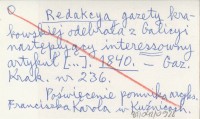 Redakcya gazety kra-
kowskiej odebrała z Galicyi
następujący interesowny
artykuł [...]. 1840. — Gaz.
Krak. nr 236.
Poświęcenie pomnika arcyks.
Franciszka Karola w Kuźnicach.